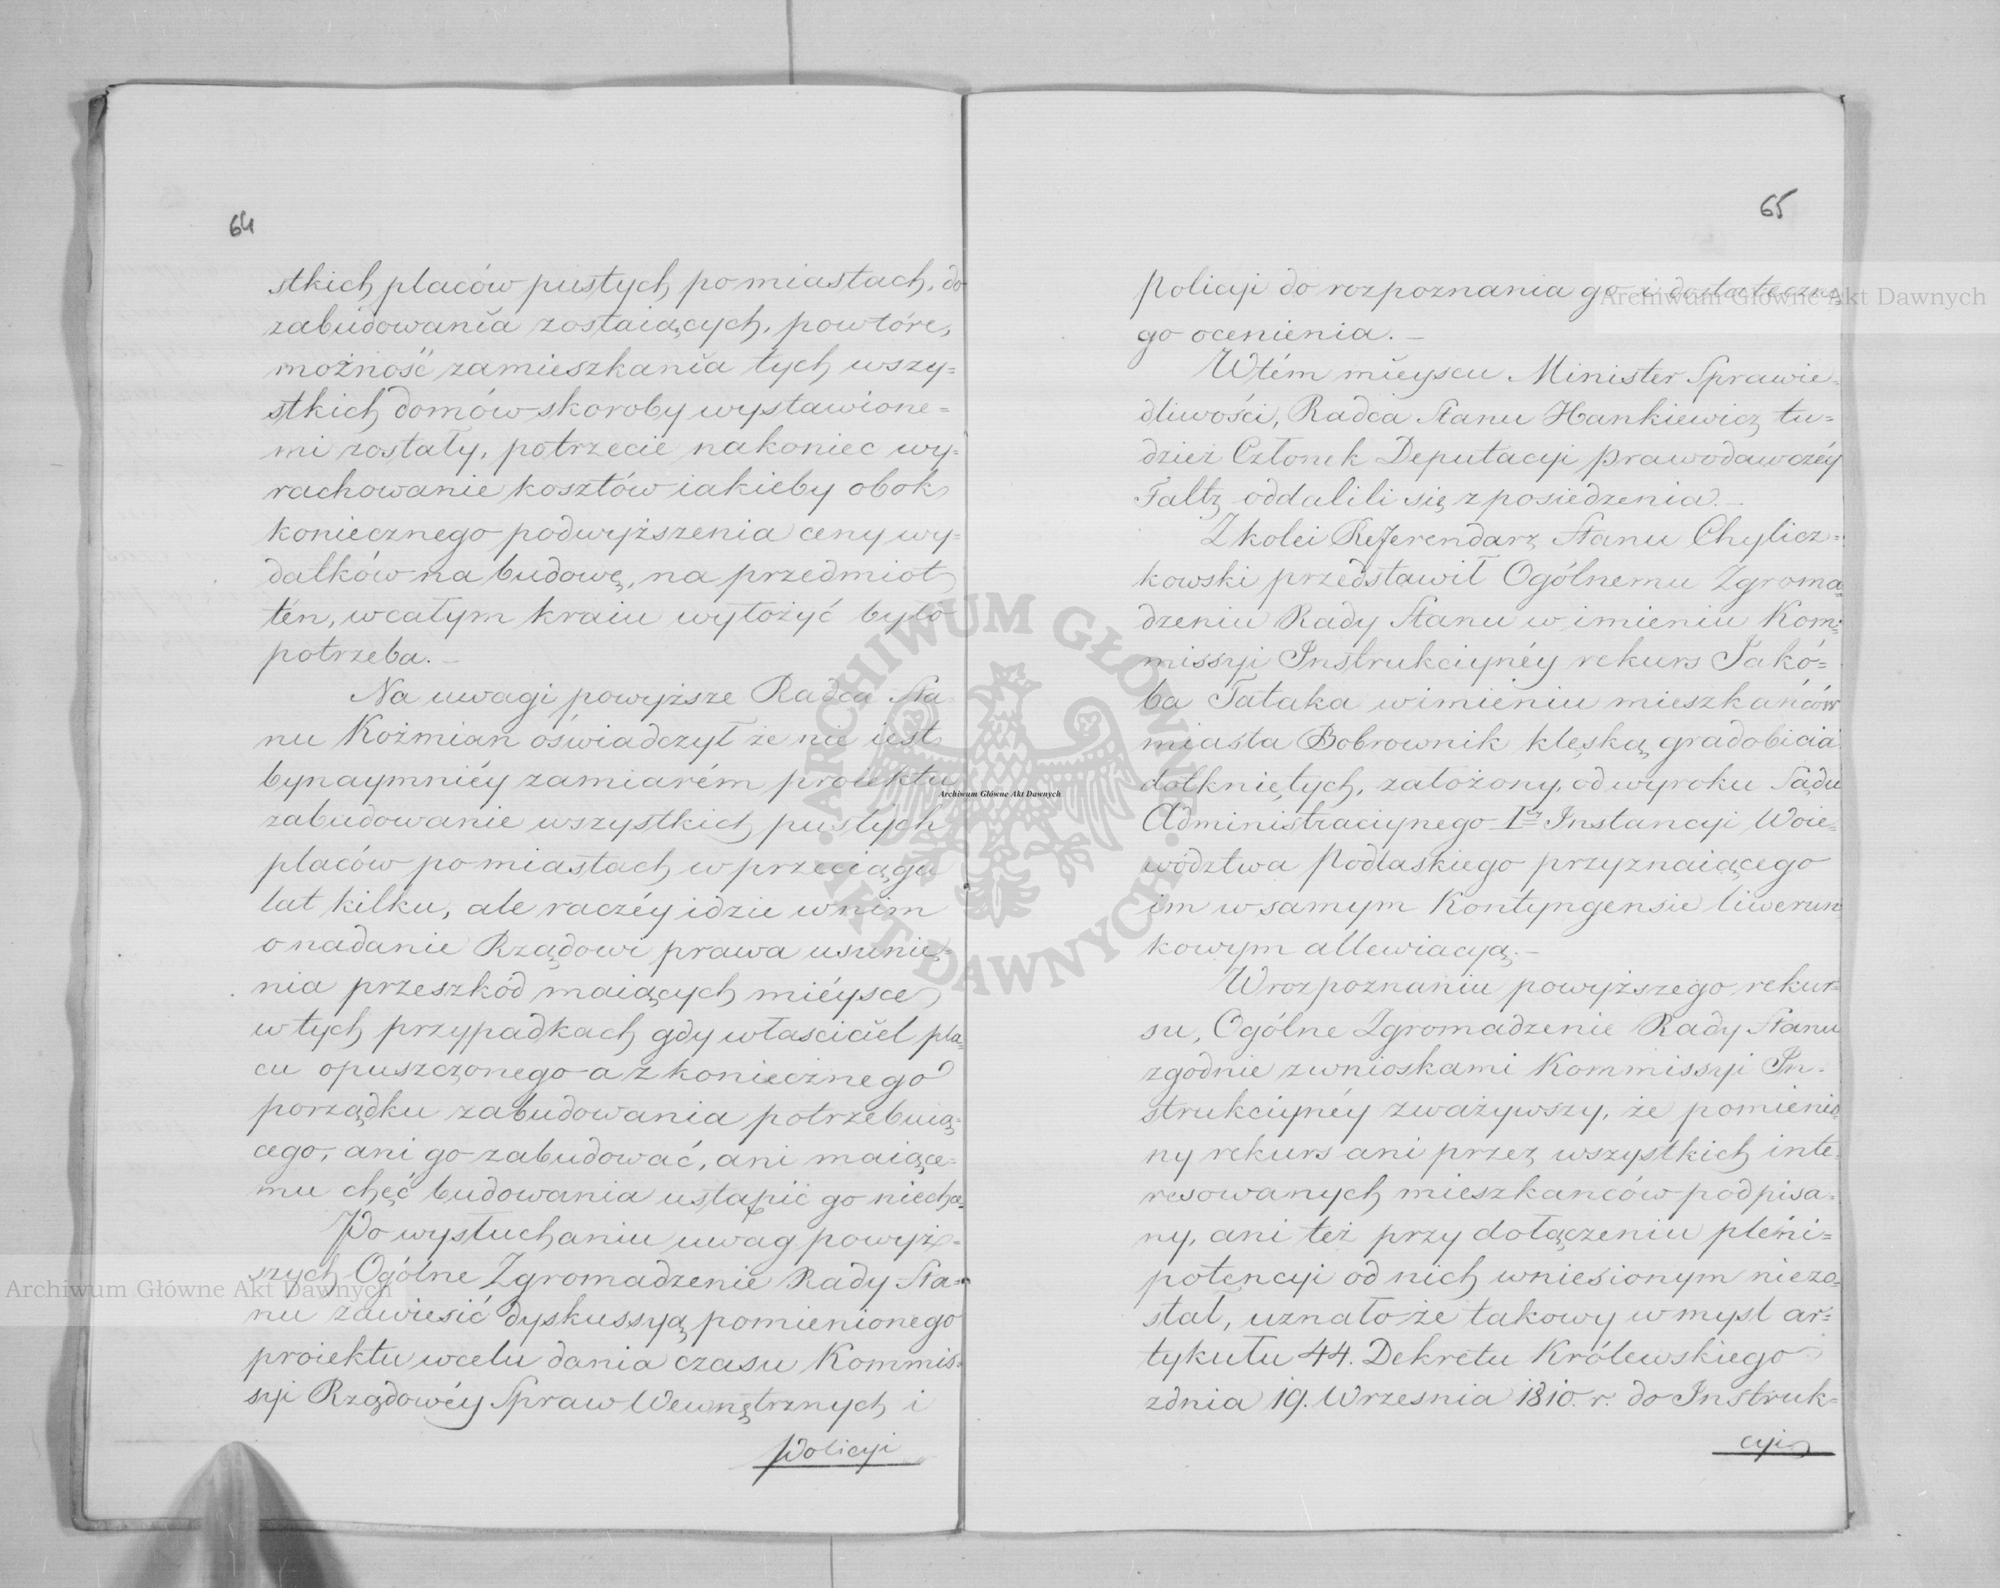 64
stkich placów pustych po miastach, do
zabudowania zostaiących, powtóre,
możność zamieszkania tych wszy=
stkich domów skoroby wystawione=
mi zostały, potrzecie nakoniec wy=
rachowanie kosztów iakieby obok
koniecznego podwyższenia ceny wy=
datków na budowę, na przedmiot
tén, wcałym kraiu wyłożyć było
potrzeba. —
Na uwagi powyższe Radca Sta
nu Koźmian oświadczył że nie iest
bynaymniéy zamiarém proiektu
zabudowanie wszystkich pustych
placów po miastach w przeciągu
lat kilku, ale raczéy idzie w nim
o nadanie Rządowi prawa usunię=
nia przeszkód maiących miéysce
w tych przypadkach gdy właściciel pla=
cu opuszczonego a z koniecznego
porządku zabudowania potrzebuią=
cego, ani go zabudować, ani maiące=
mu chęć budowania ustąpić go niechce.
Po wysłuchaniu uwag powyż=
szych Ogólne Zgromadzenie Rady Sta=
nu zawiesić dyskussyą pomienionego
proiektu wcelu dania czasu Kommis=
syi Rządowéy Spraw Wewnętrznych i
Policyi
65
Policyi do rozpoznania go i dostateczne
go ocenienia. —
Wtém mieyscu Minister Sprawie=
dliwości, Radca Stanu Hankiewicz tu=
dzież Członek Deputacyi Prawodawczéy
Faltz oddalili się z posiedzenia. —
Z kolei Referendarz Stanu Chylicz=
kowski przedstawił Ogólnemu Zgroma=
dzeniu Rady Stanu w imieniu Kom=
missyi Instrukcyinéy rekurs Jakó=
ba Tałaka w imieniu mieszkańców
miasta Bobrownik klęską gradobicia
dotkniętych, założony, od wyroku Sądu
Administracyinego Iéy Instancyi Woie=
wództwa Podlaskiego przyznaiącego
im w samym Kontyngensie liwerun
kowym allewiacyą. —
W rozpoznaniu powyższego rekur=
su, Ogólne Zgromadzenie Rady Stanu
zgodnie z wnioskami Kommissyi In=
strukcyinéy zważywszy, że pomienio=
ny rekurs ani przez wszystkich inte=
resowanych mieszkańców podpisa=
ny, ani też przy dołączeniu pleni=
potencyi od nich wniesionym niezo=
stał, uznało że takowy w mysl ar=
tykułu 44. Dekretu Królewskiego
z dnia 19. Wrzesnia 1810. r. do Instruk=
cyi
Archiwum Główne Akt Dawnych
Archiwum Główne Akt Dawnych
Archiwum Główne Akt Dawnych
ARCHIWUM GŁÓWNE · AKT DAWNYCH ·